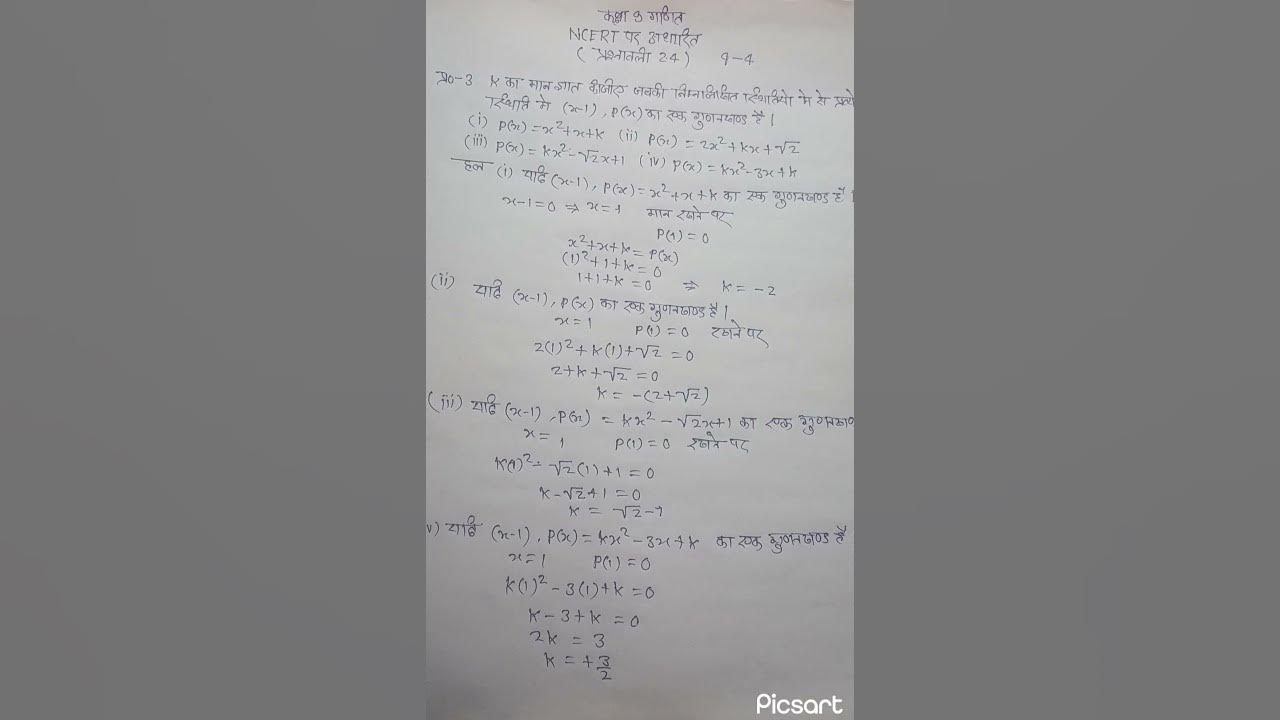 कक्षा 9 गणित
NCERT पर आधारित
( प्रश्नावली 2.4 ) 9-4
प्र०-3 K का मान ज्ञात कीजिए जबकी निम्नलिखित स्थितियो मे से
स्थिति मे (x-1), P(x) का एक गुणनखण्ड है।
(i) P(x) = x²+x+k (ii) P(x) = 2x²+kx+√2
(iii) P(x) = kx²-√2x+1 (iv) P(x) = kx²-3x+k
हल (i) यदि (x-1), P(x) = x²+x+k का एक गुणनखण्ड है।
x-1=0 ⇒ x=1 मान रखने पर
P(1) = 0
x²+x+k = P(x)
(1)²+1+k = 0
1+1+k = 0 ⇒ k = -2
(ii) यदि (x-1), P(x) का एक गुणनखण्ड है।
x=1 P(1)=0 रखने पर
2(1)²+k(1)+√2 = 0
2+k+√2 = 0
k = -(2+√2)
(iii) यदि (x-1), P(x) = kx²-√2x+1 का एक
x = 1 P(1)=0 रखने पर
k(1)²-√2(1)+1=0
k-√2+1 = 0
k = √2-1
v) यदि (x-1), P(x) = kx²-3x+k का एक गुणनखण्ड है
x=1 P(1)=0
k(1)²-3(1)+k=0
k-3+k = 0
2k = 3
k = +3/2
Picsart